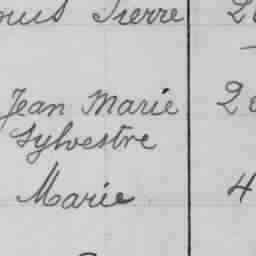 Pierre
Jean Marie
Sylvestre
Marie 4